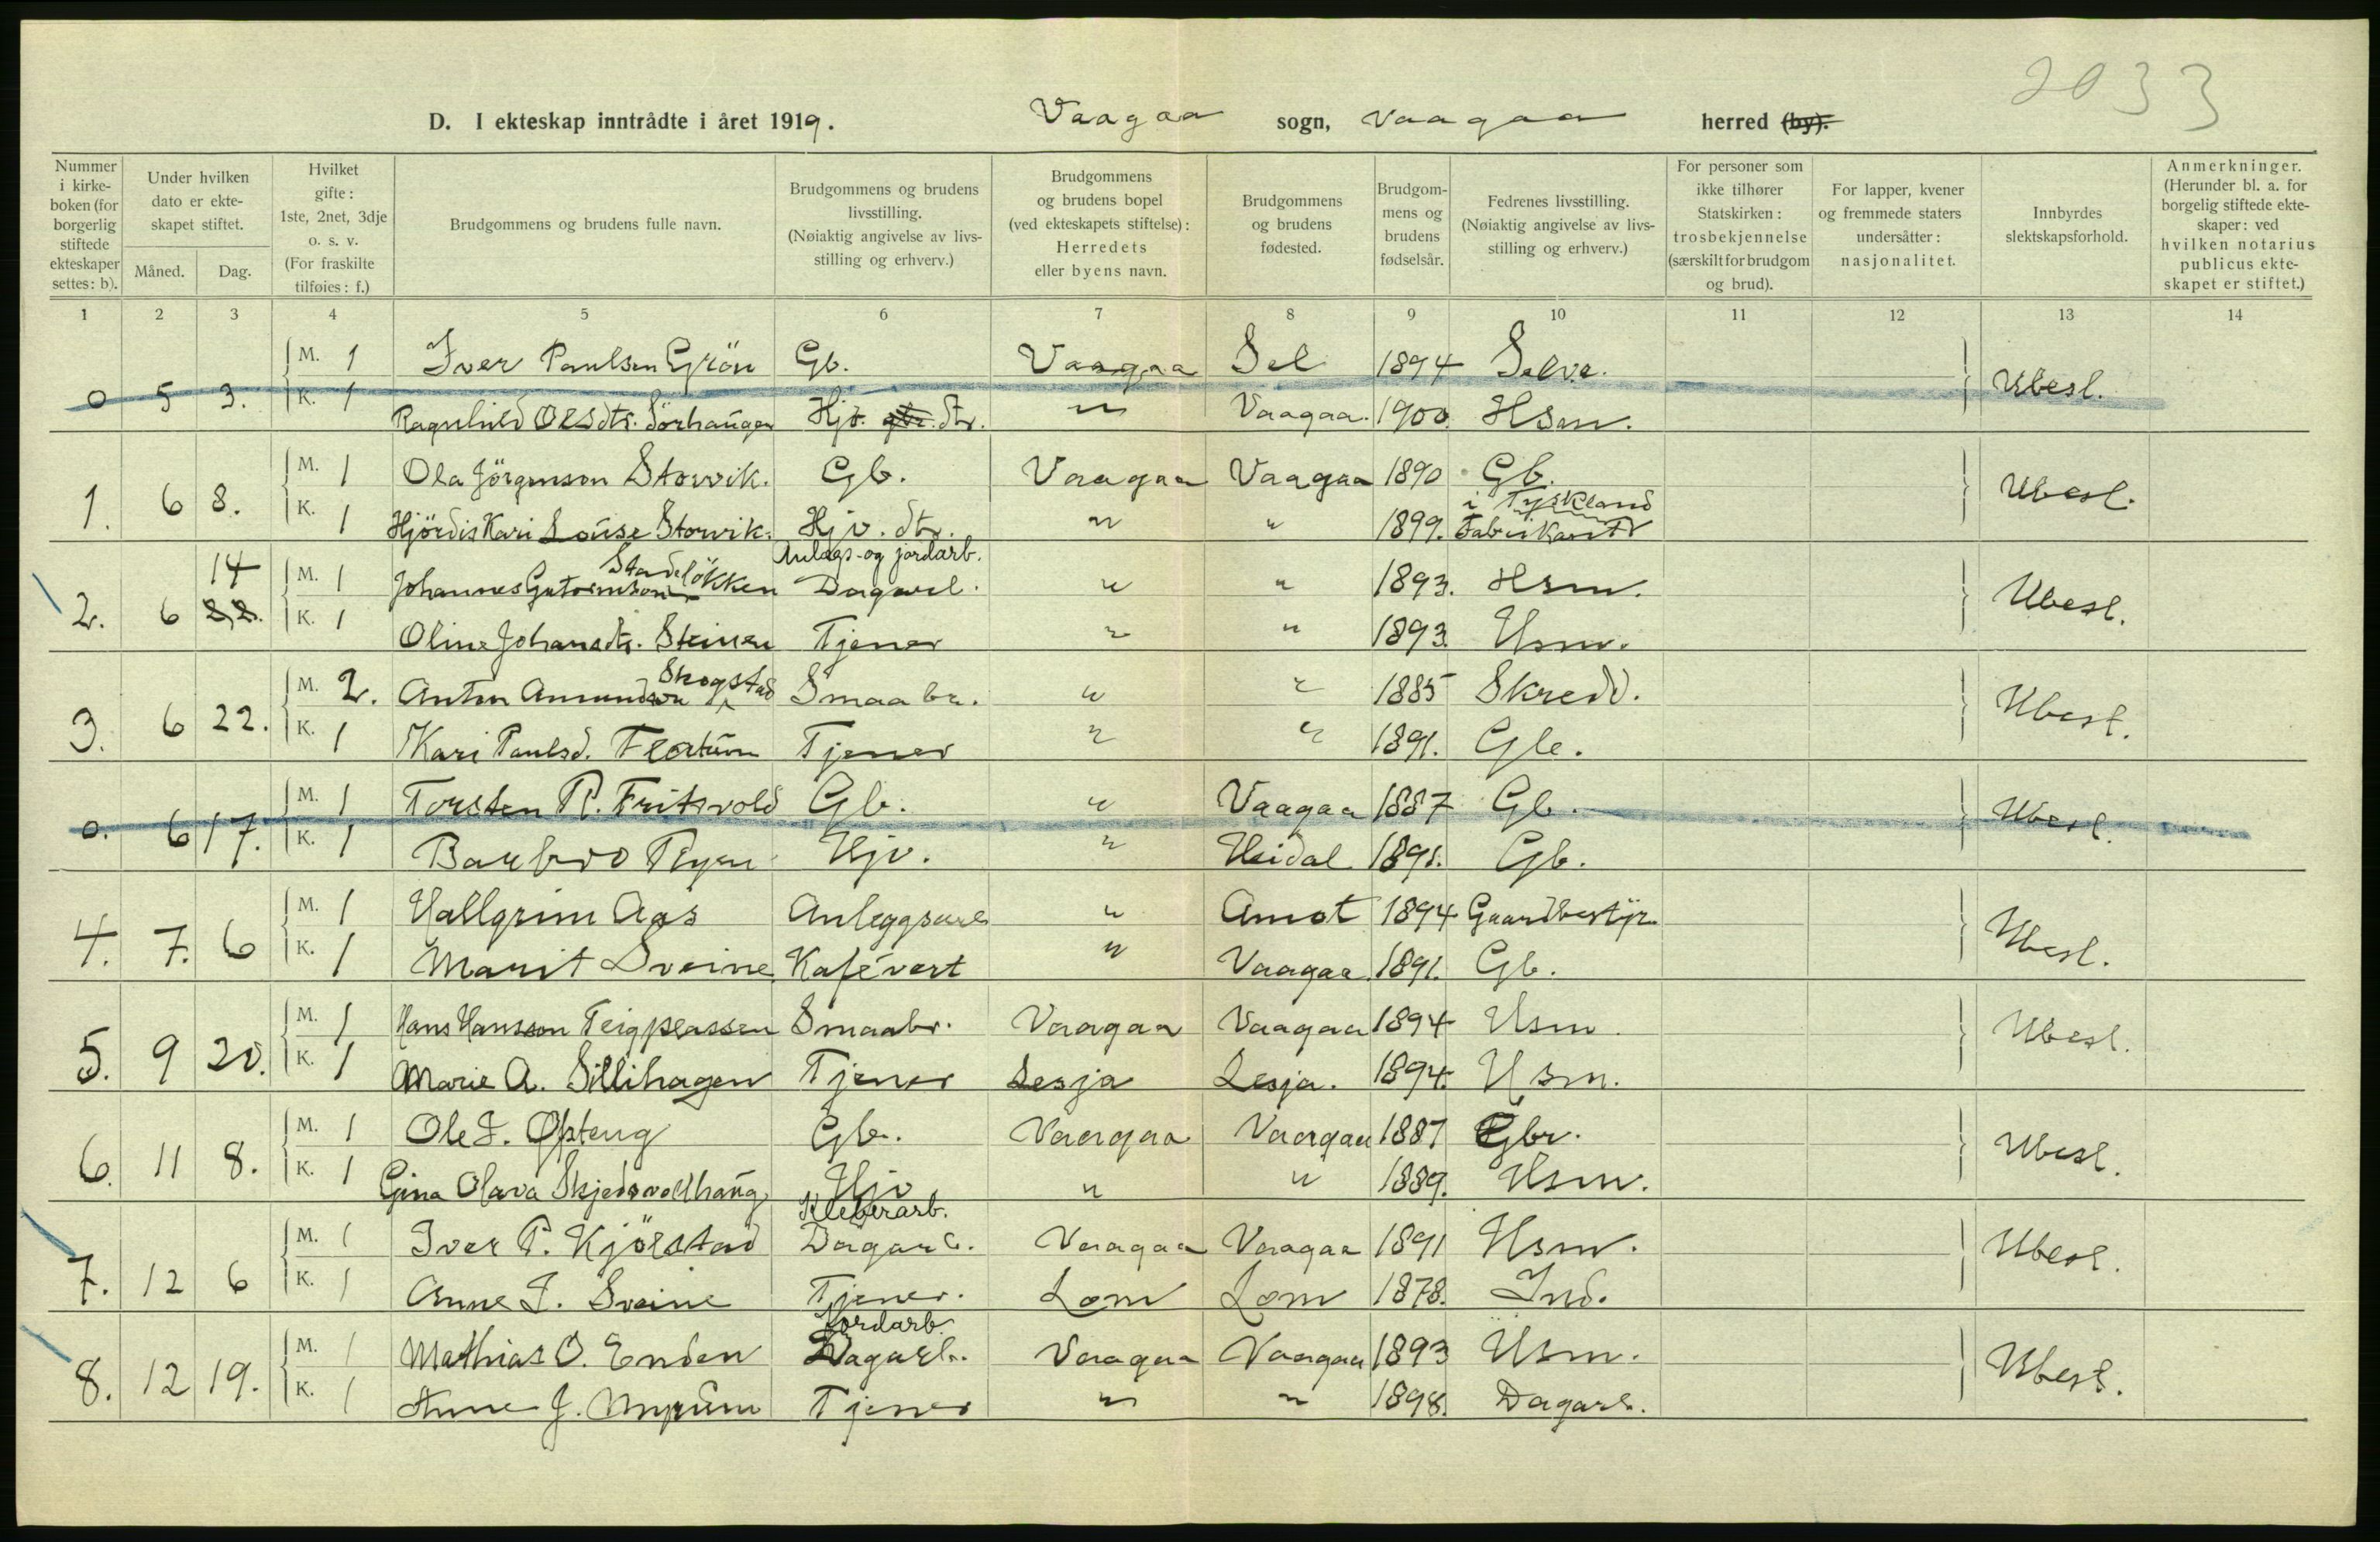 2033
D. I ekteskap inntrådte i året 1919. Vaagaa sogn, Vaagaa herred (by).
Nummer i kirkeboken (for borgerlig stiftede ekteskaper settes: b).
Under hvilken dato er ekteskapet stiftet.
Måned. Dag.
Hvilket gifte: 1ste, 2net, 3dje o. s. v. (For fraskilte tilføies: f.)
Brudgommens og brudens fulle navn.
Brudgommens og brudens livsstilling. (Nøiaktig angivelse av livsstilling og erhverv.)
Brudgommens og brudens bopel (ved ekteskapets stiftelse): Herredets eller byens navn.
Brudgommens og brudens fødested.
Brudgommens og brudens fødselsår.
Fedrenes livsstilling. (Nøiaktig angivelse av livsstilling og erhverv.)
For personer som ikke tilhører Statskirken: trosbekjennelse (særskilt for brudgom og brud).
For lapper, kvener og fremmede staters undersåtter: nasjonalitet.
Innbyrdes slektskapsforhold.
Anmerkninger. (Herunder bl. a. for borgelig stiftede ekteskaper: ved hvilken notarius publicus ekteskapet er stiftet.)
1 2 3 4 5 6 7 8 9 10 11 12 13 14
M. 1 Iver Paulsen Grön Gb. Vaagaa Sel 1894 Selve.
0 5 3. K. 1 Ragnhild Olsdtr. Sörhaugen Hjv. dtr. " Vaagaa. 1900. Hsm. Ubesl.
M. 1 Ola Jörgenson Storvik. Gb. Vaagaa Vaagaa 1890 Gb.
1. 6 8. K. 1 Hjördis Kari Louise Storvik. Hjv. dtr. " " 1899. i Tyskland Fabrikant Ubesl.
14 M. 1 Johannes Gutormson Stadeløkken Anlægs- og jordarb. Dagarb. " " 1893. Hsm.
2. 6 22. K. 1 Oline Johansdtr. Steinen Tjener " " 1893. Hsm. Ubesl.
M. 2. Anton Amundson Skogstad Smaabr. " " 1885 Skredd.
3. 6 22. K. 1 Kari Paulsd. Flatum Tjener " " 1891. Gbr. Ubesl.
M. 1 Torsten P. Fritsvold Gb. " Vaagaa 1887 Gb.
0. 6 17. K. 1 Barbro Hjv. " Heidal 1891. Gb. Ubesl.
M. 1 Hallgrim Aas Anleggsarb " Amot 1894 Gaardbestyr.
4. 7. 6 K. 1 Marit Sveine Kafévert " Vaagaa 1891. Gb. Ubesl.
M. 1 Hans Hansson Teigplassen Smaabr. Vaagaa Vaagaa 1894 Hsm.
5. 9 20. K. 1 Marie A. Sillihagen Tjener Lesja Lesja. 1894. Hsm. Ubesl.
M. 1 Ole I. Øfsteng Gb. Vaagaa Vaagaa 1887 Gbr.
6. 11 8. K. 1 Gina Olava Skjedsvollhaug Hjv " " 1889. Hsm. Ubesl.
M. 1 Iver P. Kjörstad Kleberarb. Dagarb. Vaagaa Vaagaa 1891 Hsm.
7. 12 6 K. 1 Anne I. Sveine Tjener. Lom Lom 1878. Ind. Ubesl.
M. 1 Mathias O. Enden Jordarb. Dagarb. Vaagaa Vaagaa 1893 Hsm.
8. 12 19. K. 1 Anne J. Tjener " " 1898. Dagarb. Ubesl.